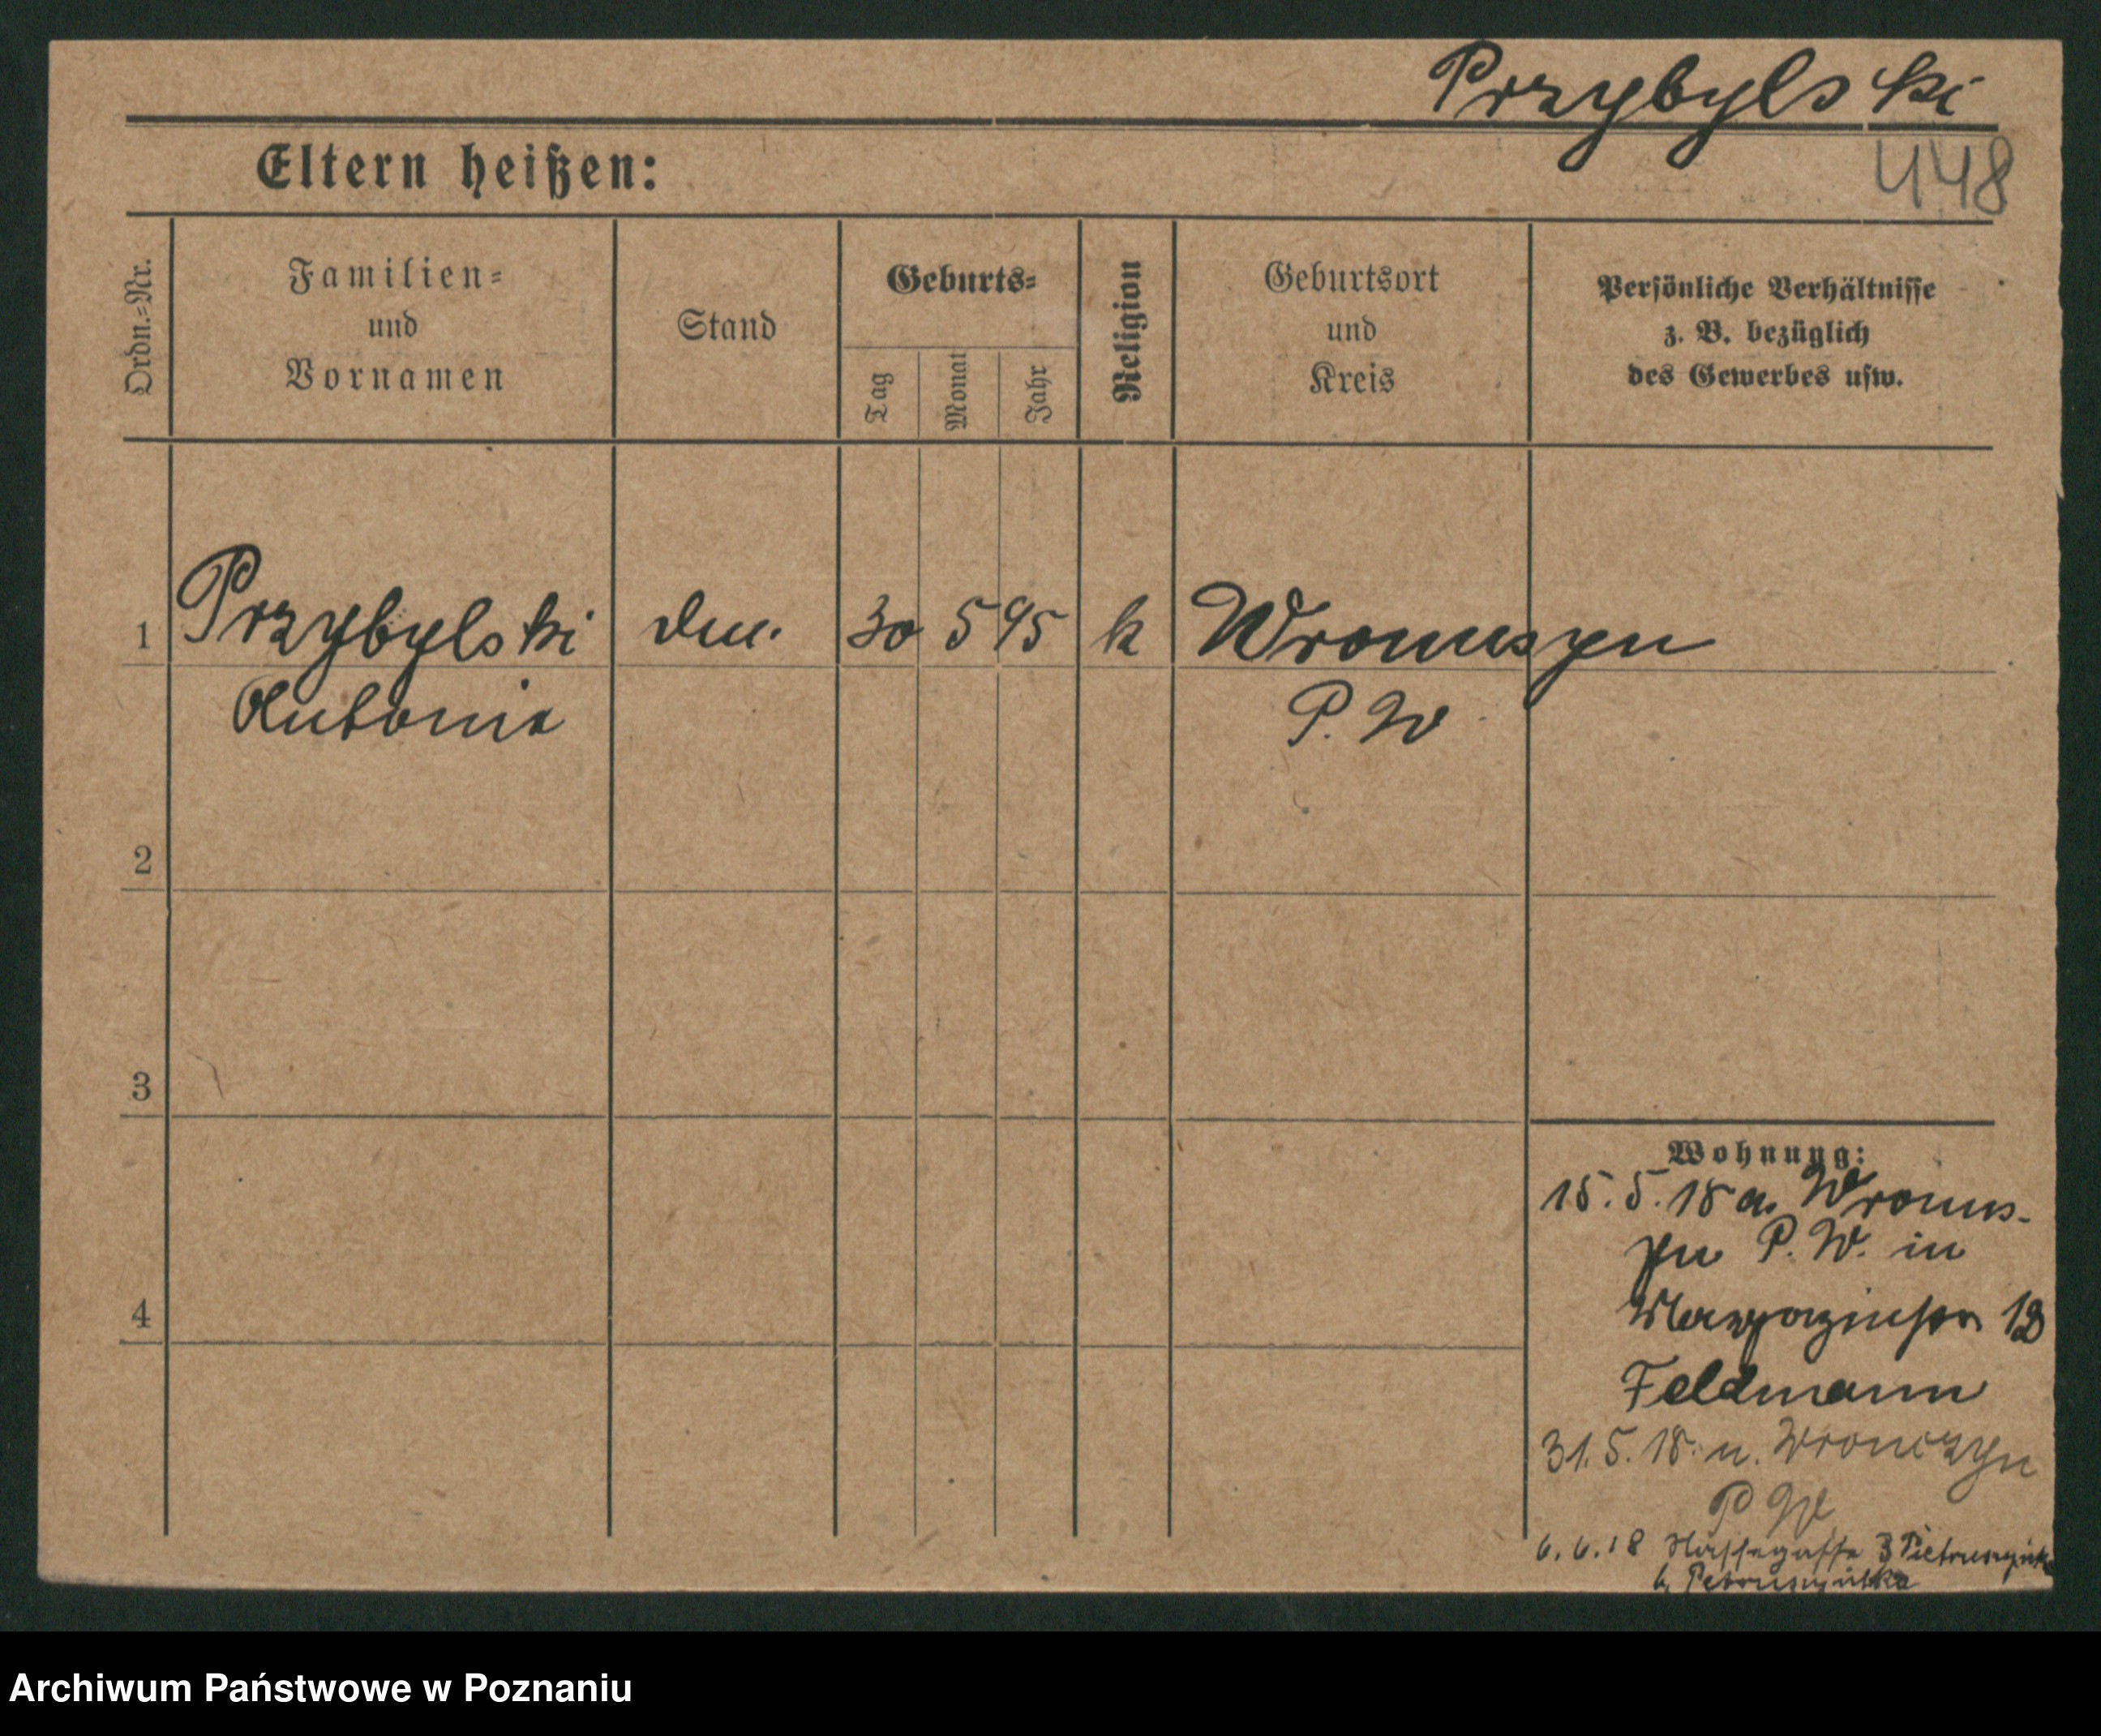 Przybylski
448
Eltern heißen:
Ordn.-Nr.
Familien- und Vornamen
Stand
Geburts-
Tag
Monat
Jahr
Religion
Geburtsort und Kreis
Persönliche Verhältnisse
z. B. bezüglich
des Gewerbes usw.
1 Przybylski 30 5 95 k Wronczyn
Antonie P. W.
2
3
4
Wohnung:
15.5.18 a. Wroncz-
yn P. W. in
Magazinstr 12
Feldmann
31.5.18. n. Wronczyn
P W
6.6.18 3
Archiwum Państwowe w Poznaniu